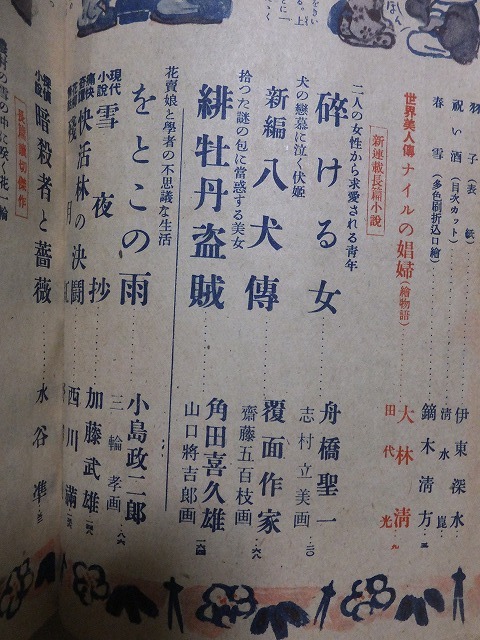 羽子(表紙)……伊東深水
祝い酒(目次カット)……清水崑
春雪(多色刷折込口繪)……鏑木清方…三
世界美人傳 ナイルの娼婦(繪物語)……大林清 田代光…九
新連載長篇小説
二人の女性から求愛される青年
碎ける女……舟橋聖一
志村立美画…二〇
犬の戀慕に泣く伏姫
新編八犬傳……覆面作家
齋藤五百枝画…六八
拾つた謎の包に當惑する美女
緋牡丹盗賊……角田喜久雄
山口將吉郎画
花賣娘と學者の不思議な生活
をとこの雨……小島政二郎
三輪孝画…八六
現代小說 雪夜抄……加藤武雄
痛快 快活林の決鬪……西川滿
長篇讀切傑作
探偵小說 暗殺者と薔薇……水谷準
の雪の中に咲く花一輪